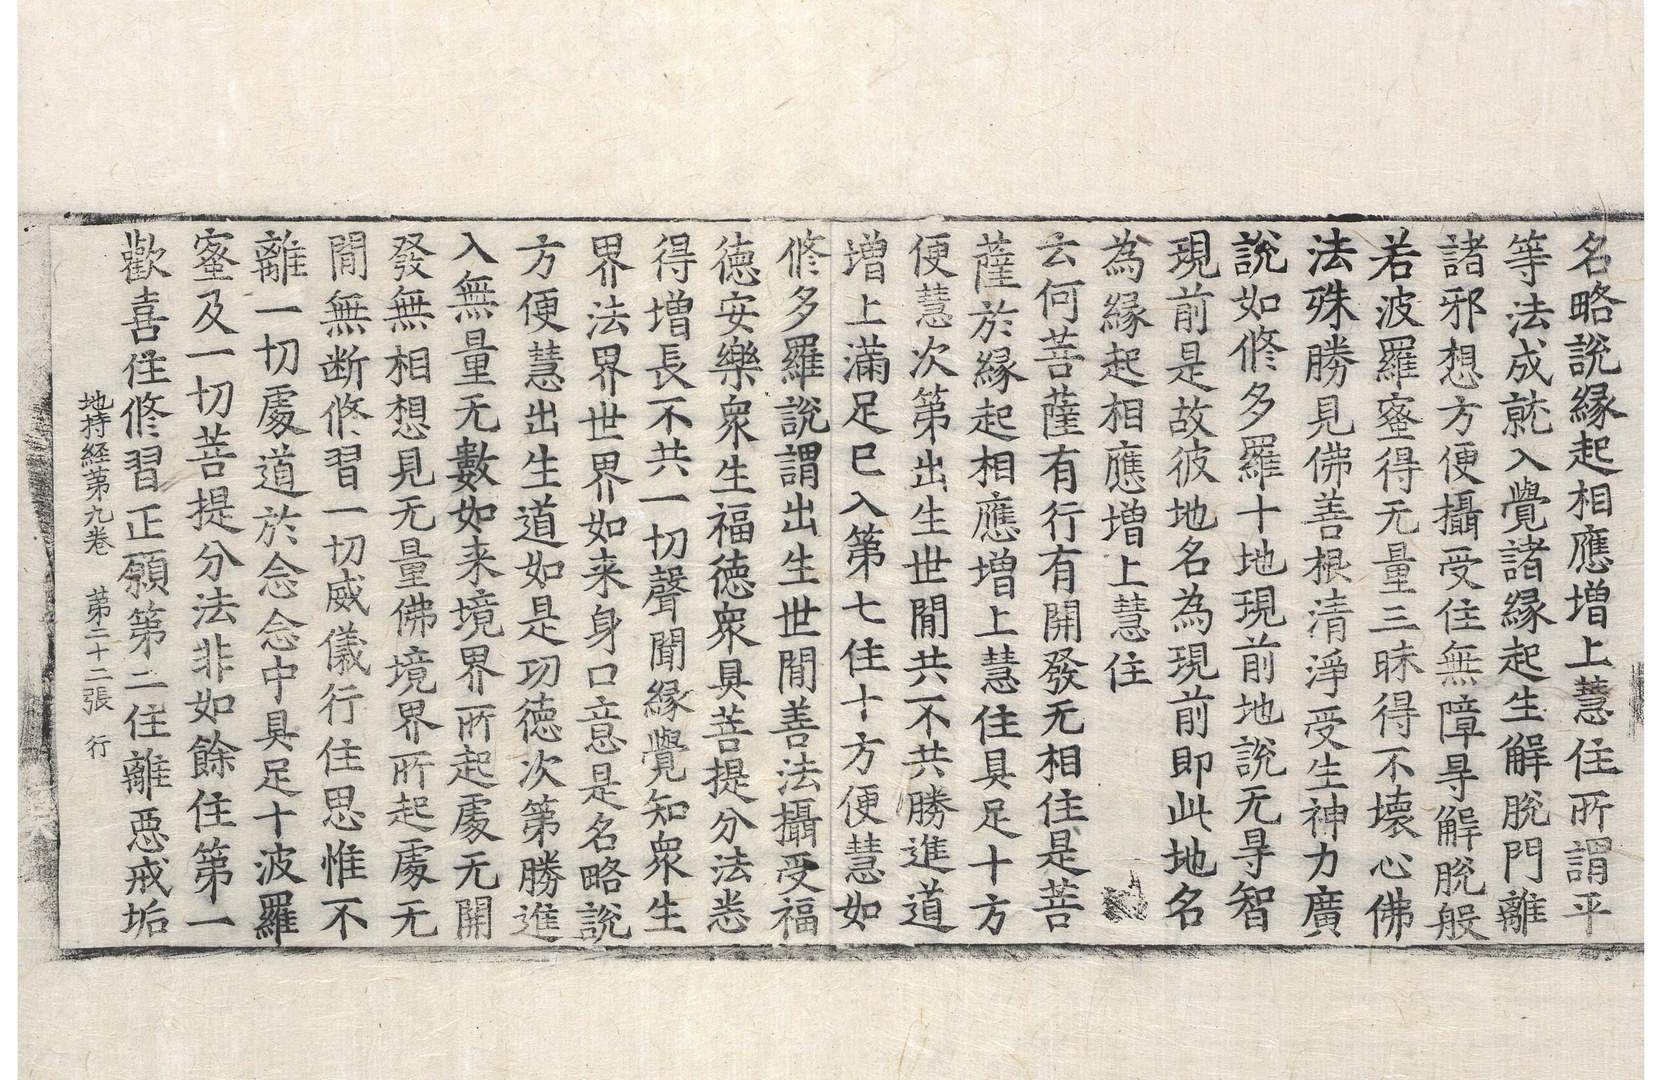 名略說緣起相應增上慧住所謂平
等法成就入覺諸緣起生解脫門離
諸邪想方便攝受住無障㝵解脫般
若波羅蜜得无量三昧得不壞心佛
法殊勝見佛善根清淨受生神力廣
說如脩多羅十地現前地說无㝵智
現前是故彼地名為現前即此地名
為緣起相應增上慧住
云何菩薩有行有開發无相住是菩
薩於緣起相應增上慧住具足十方
便慧次第出生世間共不共勝進道
增上滿足已入第七住十方便慧如
脩多羅說謂出生世間善法攝受福
德安樂衆生福德衆具菩提分法悉
得增長不共一切聲聞緣覺知衆生
界法界世界如来身口意是名略說
方便慧出生道如是功德次第勝進
入無量无數如来境界所起處无開
發無相想見无量佛境界所起處无
間無断修習一切威儀行住思惟不
離一切處道於念念中具足十波羅
蜜及一切菩提分法非如餘住第一
歡喜住修習正願第二住離惡戒垢
地持經第九卷　第二十二張　行